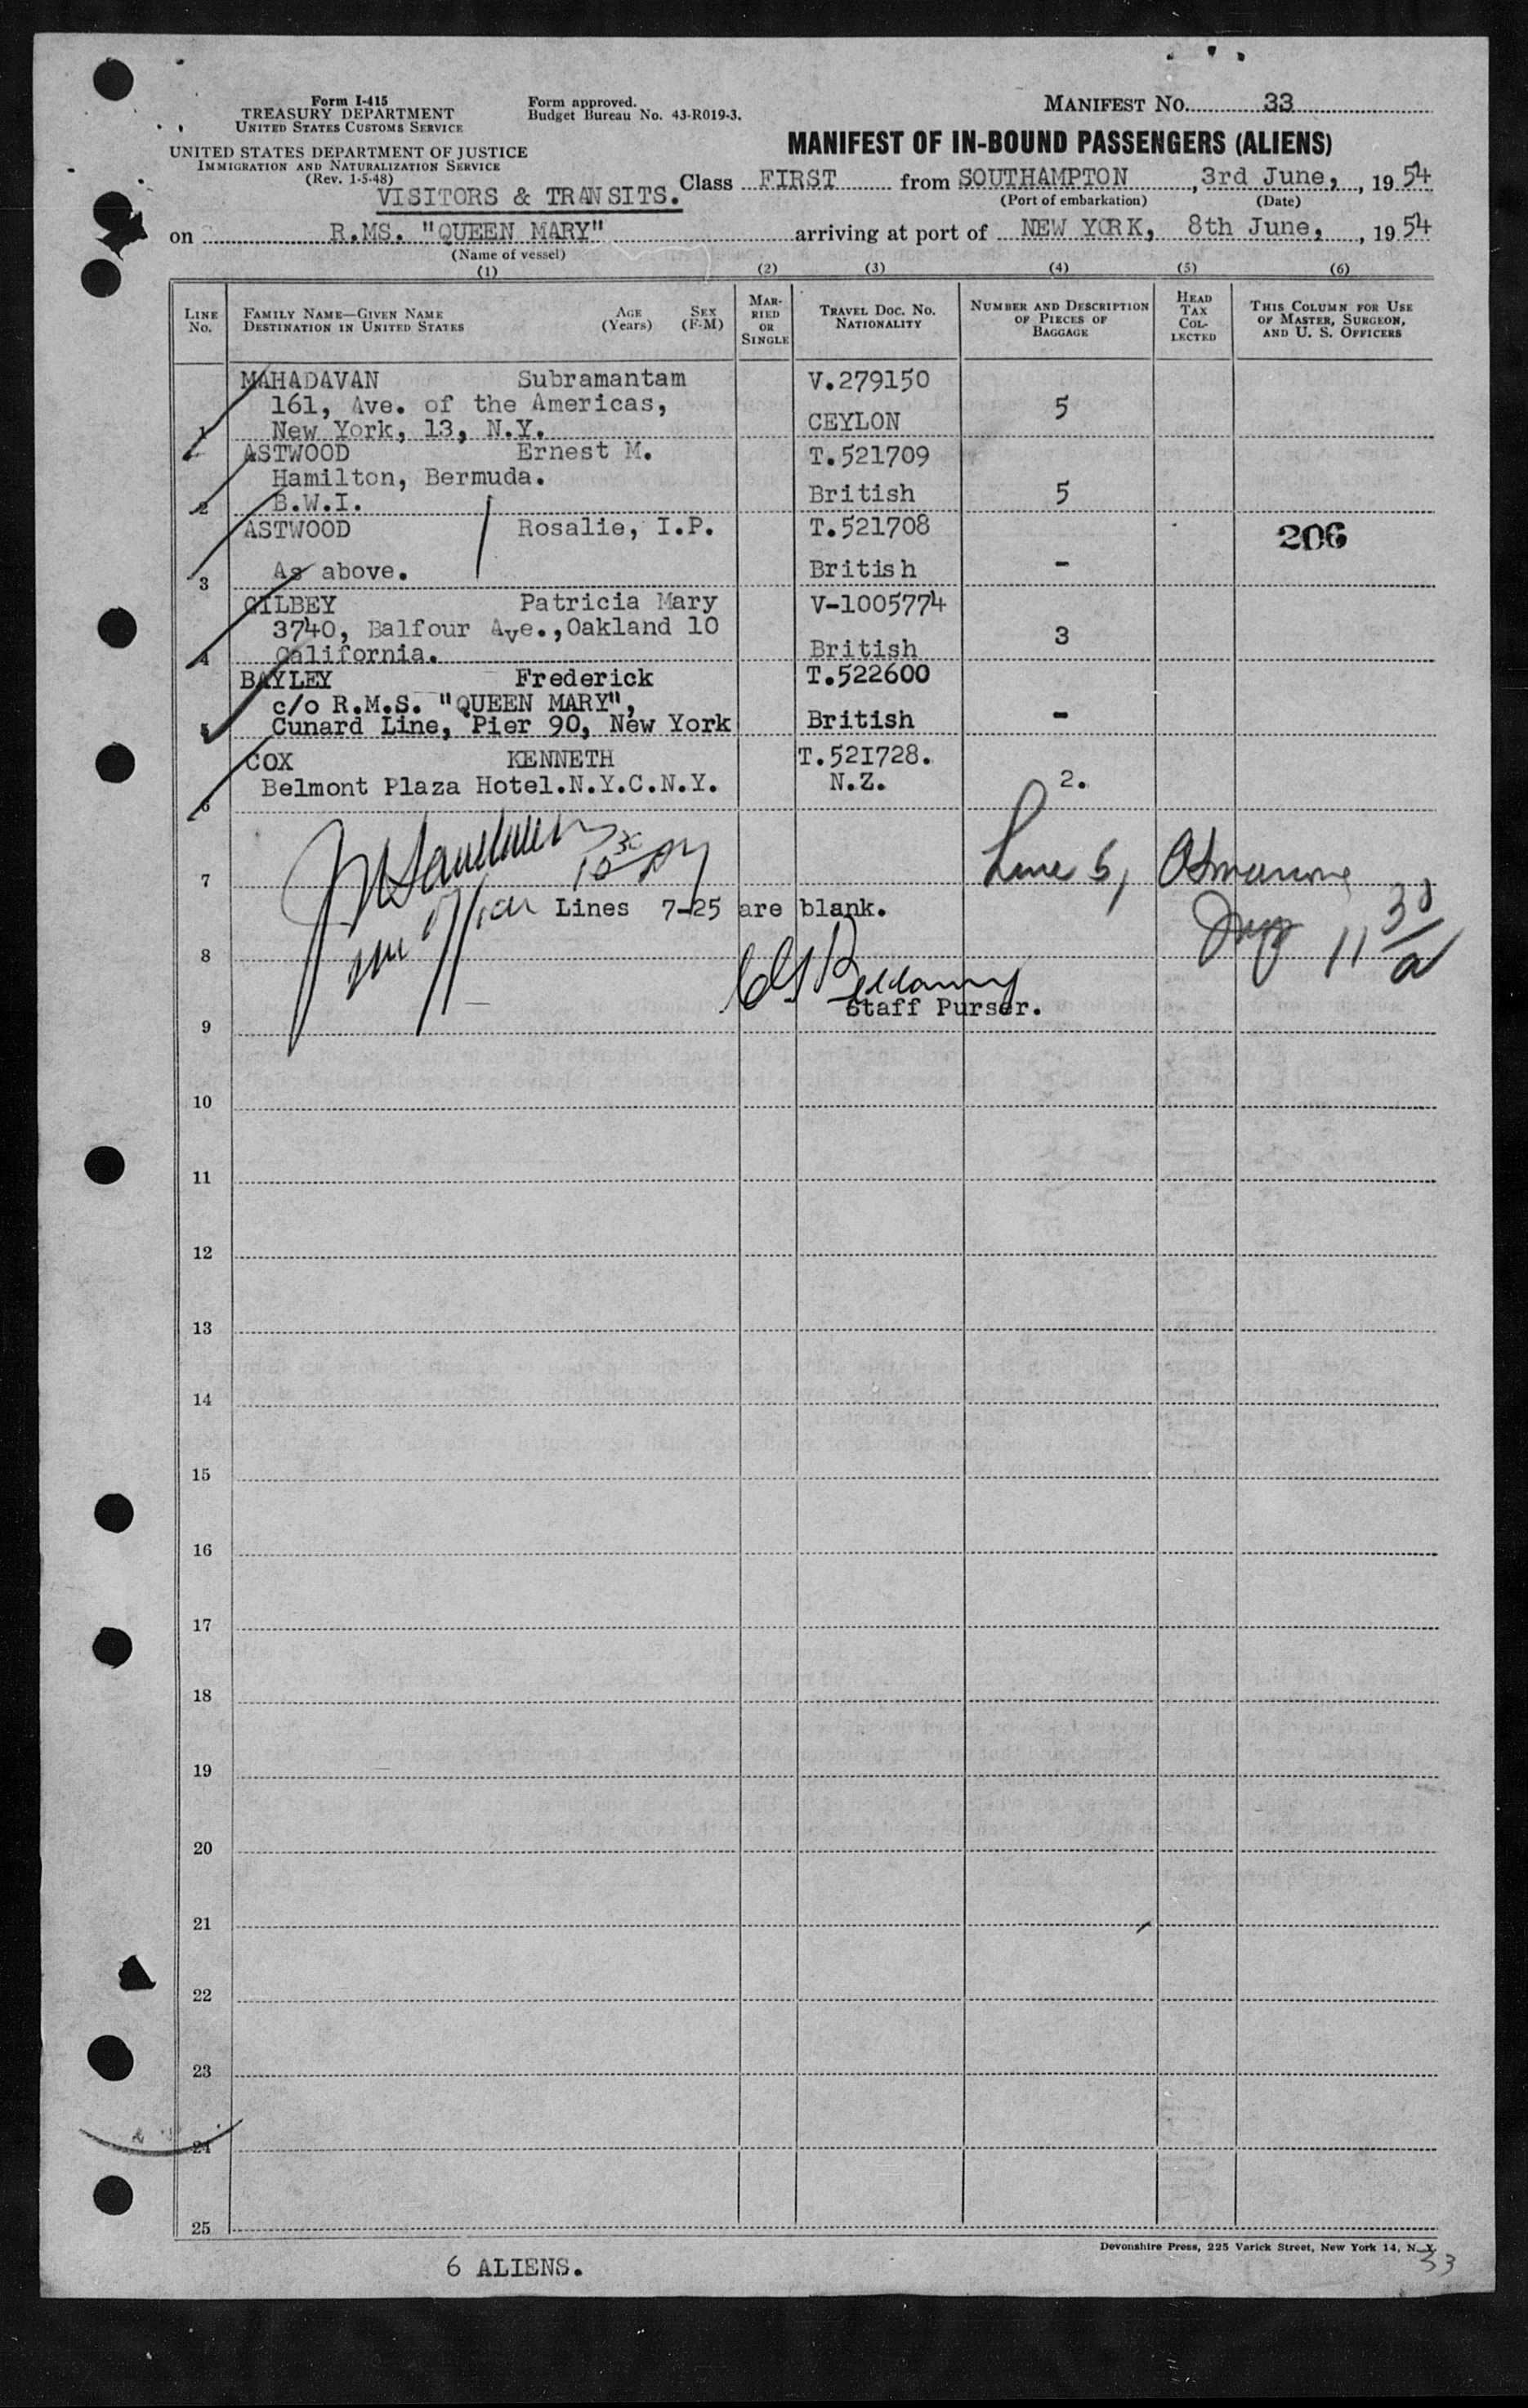 Form I-415
TREASURY DEPARTMENT
UNITED STATES CUSTOMS SERVICE
UNITED STATES DEPARTMENT OF JUSTICE
IMMIGRATION AND NATURALIZATION SERVICE
(Rev. 1-5-48)
Form approved.
Budget Bureau No. 43-R019-3.
MANIFEST NO. 33
MANIFEST OF IN-BOUND PASSENGERS (ALIENS)
VISITORS & TRANSITS.
Class FIRST from SOUTHAMPTON, 3rd June, , 1954
(Port of embarkation) (Date)
on R.MS. "QUEEN MARY" arriving at port of NEW YORK, 8th June, , 1954
(Name of vessel)
(1) (2) (3) (4) (5) (6)
LINE NO.
FAMILY NAME—GIVEN NAME
DESTINATION IN UNITED STATES
AGE (Years)
SEX (F-M)
MARRIED OR SINGLE
TRAVEL DOC. NO.
NATIONALITY
NUMBER AND DESCRIPTION OF PIECES OF BAGGAGE
HEAD TAX COLLECTED
THIS COLUMN FOR USE OF MASTER, SURGEON, AND U. S. OFFICERS
MAHADAVAN Subramantam V.279150
161, Ave. of the Americas, 5
1 New York, 13, N.Y. CEYLON
ASTWOOD Ernest M. T.521709
Hamilton, Bermuda.
2 B.W.I. British 5
ASTWOOD Rosalie, I.P. T.521708 206
3 As above. British -
GILBEY Patricia Mary V-1005774
3740, Balfour Ave.,Oakland 10 3
4 California. British
BAYLEY Frederick T.522600
c/o R.M.S. "QUEEN MARY",
5 Cunard Line, Pier 90, New York British -
COX KENNETH T.521728.
Belmont Plaza Hotel.N.Y.C.N.Y. N.Z. 2.
6
7 Line 5,
Lines 7-25 are blank.
8 11 30/a
Staff Purser.
9
10
11
12
13
14
15
16
17
18
19
20
21
22
23
24
25
Devonshire Press, 225 Varick Street, New York 14, N. Y.
33
6 ALIENS.